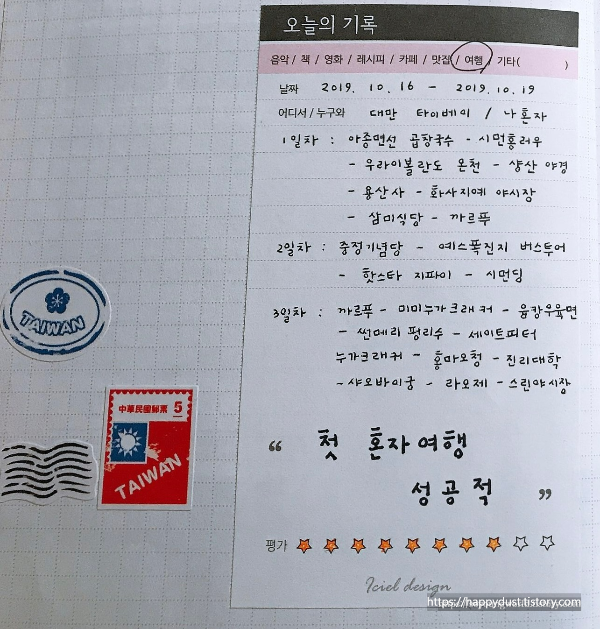 오늘의 기록
음악 / 책 / 영화 / 레시피 / 카페 / 맛집 / 여행 / 기타( )
날짜 2019. 10. 16 - 2019. 10. 19
어디서 / 누구와 대만 타이베이 / 나혼자
1일차 : 아종면선 곱창국수 - 시먼홍러우
- 우라이볼란도 온천 - 샹산 야경
- 용산사 - 화시지예 야시장
- 삼미식당 - 까르푸
2일차 : 중정기념당 - 예스폭진지 버스투어
- 핫스타 지파이 - 시먼딩
3일차 : 까르푸 - 미미누가크래커 - 융캉우육면
- 썬메리 펑리수 - 세이트피터
누가크래커 - 홍마오청 - 진리대학
- 샤오바이궁 - 라오제 - 스린야시장
“ 첫 혼자여행
성공적 ”
평가
Iciel design
https://happydust.tistory.com
TAIWAN
中華民國郵票 5
TAIWAN